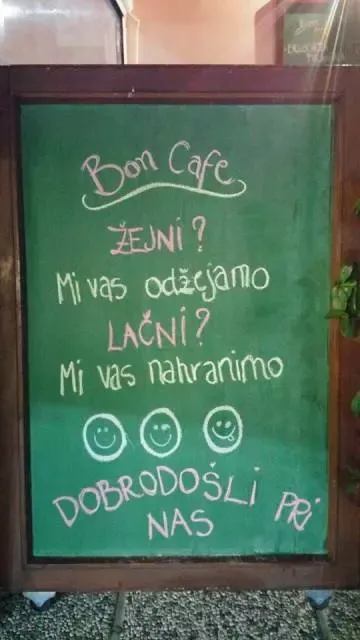 Bon Cafe
ŽEJNI?
Mi vas odžejamo
LAČNI?
Mi vas nahranimo
DOBRODOŠLI PRI
NAS